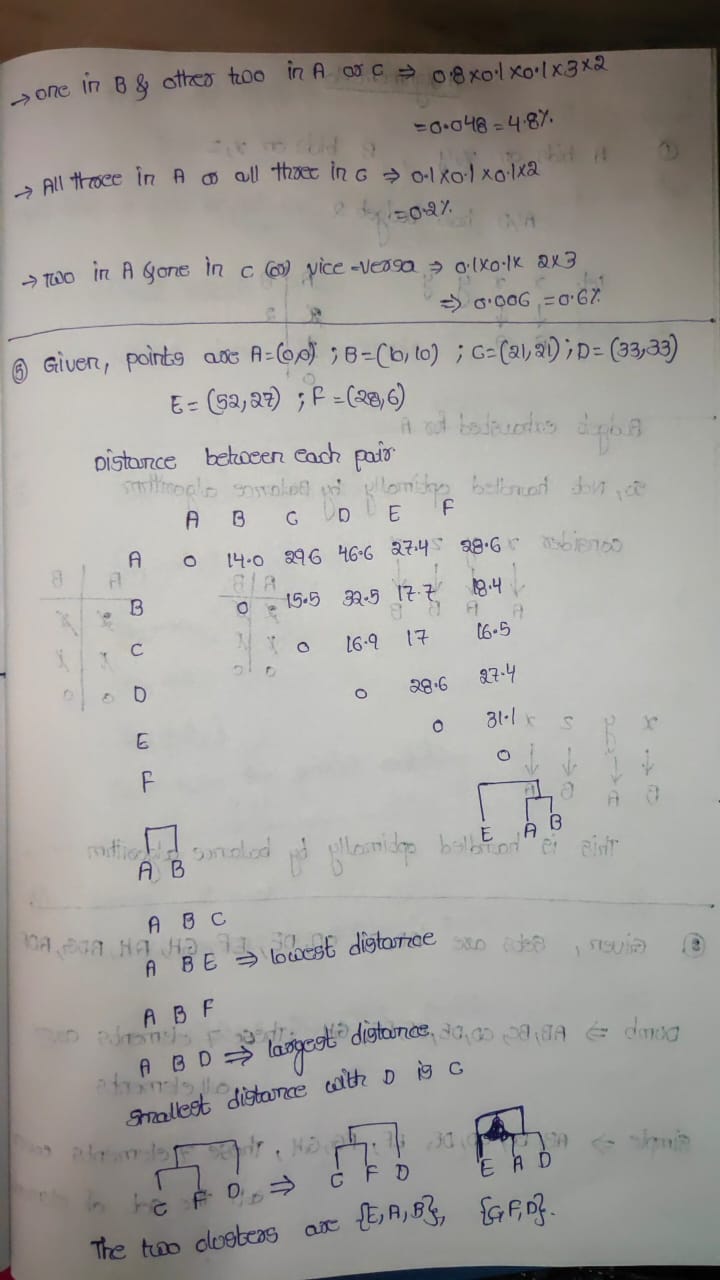 → one in B & other two in A or C ⇒ 0.8x0.1x0.1x3x2
=0.048 = 4.8%.
→ All three in A or all three in C ⇒ 0.1x0.1x0.1x2
=0.2%
→ Two in A & one in C (or) vice-versa ⇒ 0.1x0.1x 2x3
⇒ 0.006 = 0.6%
⑤ Given, points are A=(0,0) ; B=(10,10) ; C=(21,21) ; D= (33,33)
E= (52,27) ; F =(28,6)
Distance between each pair
A B C D E F
A 0 14.0 29.6 46.6 27.4 28.6
B 0 15.5 32.5 17.7 18.4
C 0 16.9 17 16.5
D 0 28.6 27.4
E 0 31.1
F 0
E A B
A B
A B C
A B E ⇒ lowest distance
A B F
A B D ⇒ largest distance
smallest distance with D is C
C F D ⇒ C F D E A D
The two clusters are {E,A,B}, {C,F,D}.